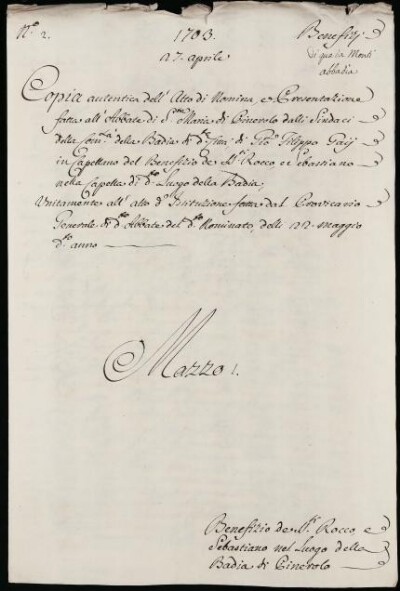 N.° 2.
1703.
27. aprile
Benefizj
di qua da Monti
abbadia
Copia autentica dell'Atto di Nomina, e Presentazione
fatta all'Abbate di S. Maria di Pinerolo dalli Sindaci
della Com.tà della Badia di d.° di Filippo
in Capellano del Benefizio de S.ti Rocco, e Sebastiano
nella Capella di d.° Luogo della Badia;
Unitamente all'atto d'Istituzione fatta dal Provicario
Generale di d.° Abbate del d.° Nominato, delli 22. maggio
d.° anno
Mazzo 1.
Benefizio de S.ti Rocco e
Sebastiano nel Luogo della
Badia di Pinerolo